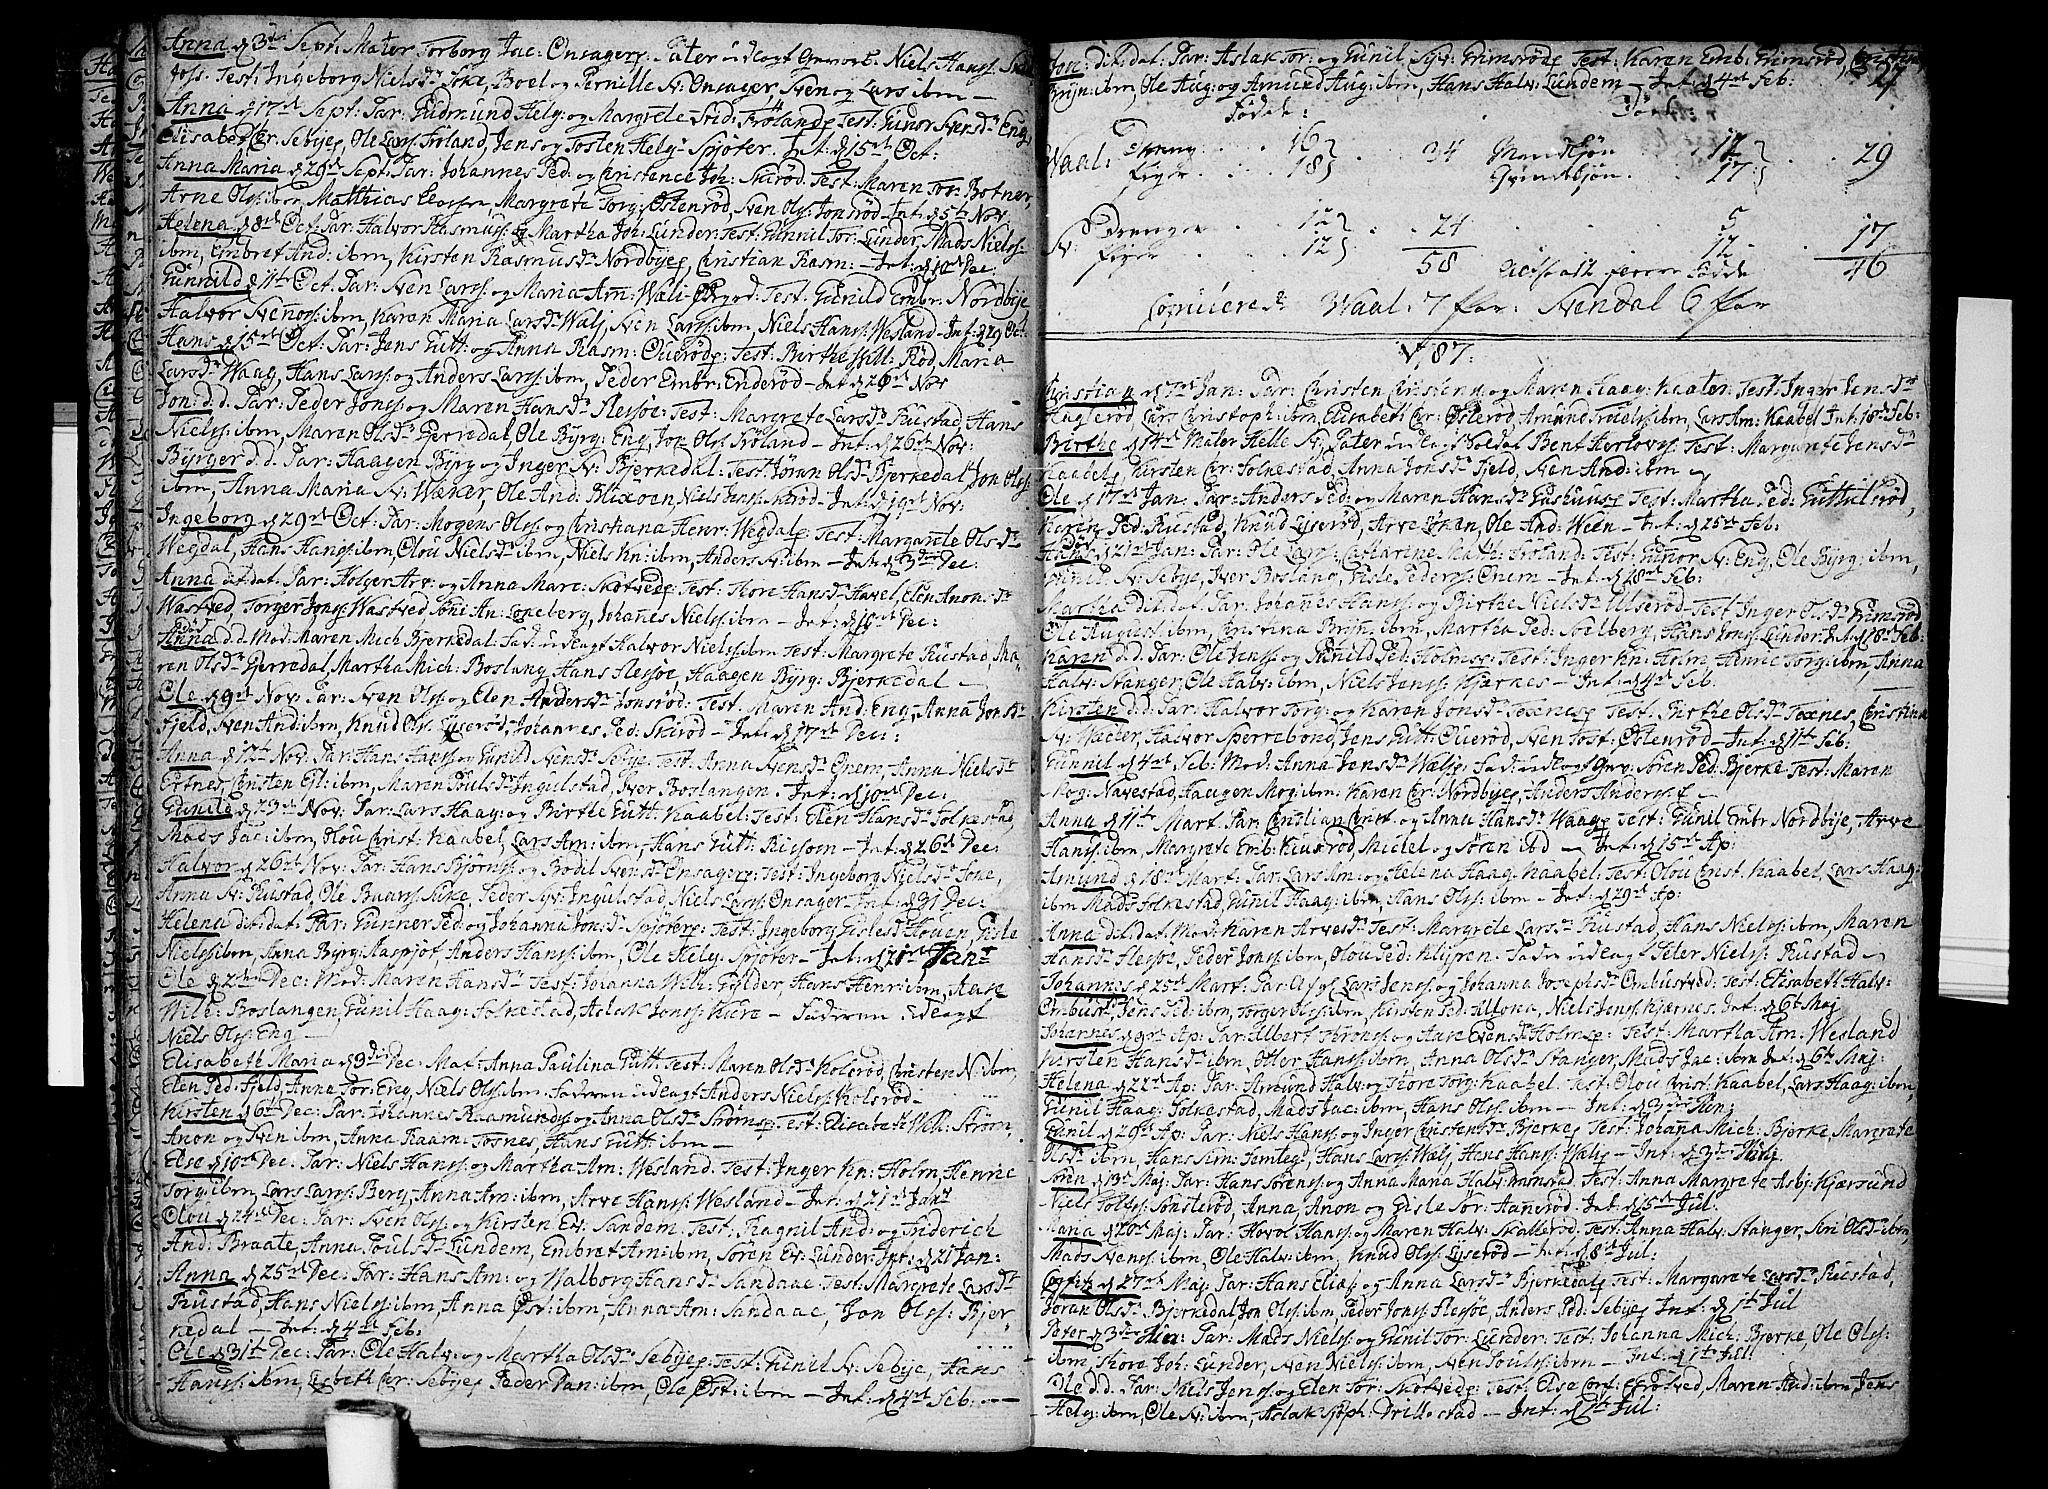 Anna d 3die Sept: Mater Torborg Jac: Onsager, Pater udlagt Niels Hanss:
Test: Ingeborg Nielsd: Boel og Pernille Sv: Onsager, Sven og Lars ibm –
Anna d 17de Sept: Par: Gudmund Helg: og Margrete Frölands Test: Gunor Svensd: Eng,
Elisabet Cr: Sebye, Ole Larss: Fröland, Jens og Tosten Helg: Spjöter. Int: d 15de Oct:
Anna Maria d 29de Sept: Par: Johannes Ped: og Cristence Joh: Skiröd. Test: Maren Tor: Botner,
Arne Olss: ibm, Matthias Margrete Torg: Östenröd, Sven Olss: Jonsröd – Int: d 5te Nov:
Helena d 8de Oct: Par: Halvor Rasmuss: og Martha Joh: Lunder: Test: Gunnil Tor: Lunder, Mads Nielss:
ibm, Embret And: ibm, Kirsten Rasmusd: Nordbye, Cristian Rasm: – Int: d 10de Dec:
Gunnild d 11te Oct: Par: Sven Larss: og Maria Am: Test: Gunild Embr: Nordbye
Halvor Svenss: ibm, Karen Maria Larsd: Walj, Sven Larss: ibm, Niels Hanss: Wesland – Int: d 29 Oct:
Hans d 15de Oct: Par: Jens Gutt: og Anna Rasm: Oueröd: Test: Birthe Röd, Maria
Larsd: Waag, Hans Larss: og Anders Larss: ibm, Peder Embr: Enderöd – Int: d 26de Nov
Jon: d. d. Par: Peder Jonss: og Maren Hansd: Flessöe: Test: Margrete Larsd: Rustad, Hans
Nielss: ibm, Maren Olsd: Gerredal, Ole Byrg: Eng, Jon Olss: Fröland – Int: d 26de Nov:
Byrger d. d. Par: Haagen Byrg: og Inger Sv: Bjerkedal: Test: Jöran Olsd: Bjerkedal, Jon Olss:
ibm, Anna Maria Sv: Wæker, Ole And: Blixoen, Niels Jenss: Skröd – Int: d 19de Nov:
Ingeborg d 29de Oct: Par: Mogens Olss: og Cristiana Henr: Wegdal: Test: Margarete Olsd:
Wegdal, Hans Hanss: ibm, Olou Nielsd: ibm, Niels Kn: ibm, Anders Sv: ibm – Int: d 3die Dec:
Anna dit: dat: Par: Holger Arv: og Anna Marc: Skotved: Test: Thore Hansd: Havel, Elen Anon: d:
Wastved, Torger Jonss: Wastved, An: Loneberg, Johanes Nielss: ibm – Int: d 10de Dec:
Anna d. d. Mod: Maren Mich: Bjerkedal. Fad: udlagt Halvor Nielss: ibm Test: Margrete Rustad, Ma,
ren Olsd: Gerredal, Martha Mich: Boslang, Hans Flessöe, Haagen Byrg: Bjerkedal –
Ole d 9de Nov: Par: Sven Olss: og Elen Andersd: Jonsröd: Test: Maren And: Eng, Anna Jonsd:
Fjeld, Sven And: ibm, Knud Ols: Liseröd, Johannes Ped: Skiröd – Int: d 17de Dec:
Anna d 17de Nov: Par: Hans Hanss: og Gunild Svensd: Sebye: Test: Anna Svensd: Onem, Anna Nielsd:
Ertnes, Cristen Ols: ibm, Maren Poulsd: Ingulstad, Iver Boslangen: Int: d 10de Dec:
Gunild d 23de Nov: Par: Lars Haag: og Birthe Gutt: Kaabel: Test: Elen Hansd: Folkestad,
Mads Jac: ibm, Olou Crist: Kaabel, Lars Am: ibm, Hans Gutt: – Int: d 26de Dec:
Halvor d 26de Nov: Par: Hans Björns: og Bodil Svensd: Onsager: Test: Ingeborg Nielsd:
Anna Sv: Rustad, Ole Peder Syv: Ingulstad, Niels Larss: Onsager – Int: d 31 Dec:
Helena dit: dat: Par: Gunner Ped: og Johanna Jon: d: Spjöter: Test: Ingeborg Gisled: Houen, Gisle
Nielss: ibm, Anna Byrg: Anders Hanss: ibm, Ole Helg: Spjöter – Int: d 21de Jan:
Ole d 2den Dec: Mod: Maren Hansd: Test: Johanna Wilh: Gylder, Hans Henr: ibm,
Wilh: Boslangen, Gunil Haag: Folkestad, Aslak Jonss: – Faderen udlagt
Niels Olss: Eng –
Elisabeth Maria d 3die Dec: Mat: Anna Paulina Test: Maren Olsd: Kolsröd, Cristen N: ibm,
Elen Ped: Fjeld, Anna Tor: Eng, Niels Olss: ibm Faderen udlagt Anders Nielss: Kolsröd –
Kirsten d 6te Dec: Par: Johannes Raamundss: og Anna Olsd: Ström: Test: Elisabeth Wilh: Ström,
Anon og Sven ibm, Anna Raam: Tosnes, Hans Gutt: ibm –
Else d 10de Dec: Par: Niels Hanss: og Martha Am: Wesland. Test: Inger Kn: Holm, Henric
Torg: ibm, Lars Larss: Berg, Anna Am: ibm, Arve Hanss: Wesland – Int: d 21de Jan:
Olou d 24de Dec: Par: Sven Olss: og Kirsten Ev: Sandem. Test: Ragnil And: og Friderich
And: Braate, Anna Poulsd: Lundem, Embret Am: ibm, Sören Ev: Lunder. Int: d 21 Jan:
Anna d 25de Dec: Par: Hans Am: og Walborg Hansd: Sandaae Test: Margrete Larsd:
Rustad, Hans Nielss: ibm, Anna Öst: ibm, Anna Am: Sandaae, Jon Olss: Bjer,
kedal – Int: d 4de Feb:
Ole d 31te Dec: Par: Ole Halv: og Martha Olsd: Sebye: Test: Gunil Sv: Sebye, Hans
Hanss: ibm, Lisbeth Cr: Sebye, Peder Dan: ibm, Ole Öst: ibm – Int: d 4de Feb: –
Jon: dit: dat: Par: Aslak Tor: og Gunil Syv: Grimsröd: Test: Karen Emb: Grimsröd, Cristina
Bryn: ibm, Ole Aug: og Amund Aug: ibm, Hans Halv: Lundem – Int: d 4de Feb: 27
Födde: Döde:
Waal: Dreng . . 16 } . . 34 Mandkjön . . 12 } . . 29
Piger . . . 18 } Qvindekjön . . 17 }
Sv: Drenger . . 12 } . . 24 . . . 5 . . 17
Piger . . 12 } 12
58 Födde 46
Copulerede Waal: 7 Par: Svendal 6 Par
1787:
Cristian d 7de Jan: Par: Christen Cristens: og Maren Haag: Test: Inger Jensd:
Hugleröd, Lars Cristoph: ibm, Elisabeth Cr: Österöd, Amund Truelss: ibm, Lars Am: Kaabel Int: 18de Feb:
Birthe d 14de Mater Helle Sv: Pater udlagt Soldat Bent Herlovs: Test: Margarete Jensd:
Kaabel, Kirsten Cr: Folkestad, Anna Jonsd: Fjeld, Sven And: ibm –
Ole d 17de Jan: Par: Anders Ped: og Maren Hansd: Test: Martha Ped: Guttulsröd,
Karen Ped: Rustad, Knud Liseröd, Arve Loken, Ole And: Ween – Int: d 25de Feb:
Hans d 21de Jan: Par: Ole Larss: Catharine Math: Fröland: Test: Gunor Sv: Eng, Ole Byrg: ibm,
Gunild Sv: Sebye, Iver Boslang, Gisle Peders: Onem – Int: d 18de Feb:
Martha dit: dat: Par: Johannes Hanss: og Birthe Nielsd: Ulseröd – Test Inger Olsd: Grimsröd
Ole August: ibm, Cristina Bryn: ibm, Martha Ped: Solberg, Hans Jonss: Lunder. Int: d 18de Feb:
Karen d. d. Par: Ole Jenss: og Gunild Ped: Holms: Test: Inger Kn: Holm, Henric Torg: ibm, Anna
Halv: Stanger, Ole Halv: ibm, Niels Jenss: Kjærnes – Int: d 4de Feb.
Kirsten d. d. Par: Halvor Torg: og Karen Jonsd: Texnes Test: Birthe Olsd: Texnes, Cristina
Sv: Wæker, Halvor Sperrebond, Jens Gutt: Oueröd, Sven Tost: Östenröd – Int: d 11te Feb:
Gunnil d 4de Feb: Mod: Anna Jensd: Wælj: Fad: udlagt Sören Ped: Bjerke Test: Maren
Mog: Navestad, Haagen Mog: ibm: Karen Cr: Nordbye, Anders Anderss: –
Anna d 11te Mart: Par: Cristian Crist: og Anna Hansd: Waag: Test: Gunil Embr: Nordbye, Arve
Hanss: ibm, Margrete Emb: Michel og Sören ibd – Int: d 15de Ap:
Amund d 18de Mart: Par: Lars Am: og Helena Haag: Kaabel: Test: Olou Crist: Kaabel, Lars Haag:
ibm, Mads Folkestad, Gunil Haag: ibm, Hans Olss: ibm – Int: d 29de Ap:
Anna dit: dat: Mod: Karen Arvesd: Test: Margrete Larsd: Rustad, Hans Nielss: ibm, Maren
Hansd: Flessöe, Peder Jonss: ibm, Olou Ped: Fader udlagt Peter Nielss: Rustad –
Johannis d 25de Mart: Par: Lars Jenss: og Johanna Josephsd: Ombustved: Test: Elisabeth Halv:
Ombust:, Jens Ped: ibm, Torger Olss: ibm, Kirsten Ped: Altona, Niels Jenss: Kjærnes. Int: d 6te Maj
Johannes d 9de Ap: Par: Elbert og Anne Evensd: Holms: Test: Martha Am: Wesland
Kirsten Hansd: ibm, Otter Hanss: ibm, Anna Olsd: Stanger, Mads Jac: ibm Int: d 6te Maj:
Helena d 22de Ap: Par: Amund Halv: og Thore Torg: Kaabel: Test: Olou Crist: Kaabel, Lars Haag: ibm,
Gunil Haag: Folkestad, Mads Jac: ibm, Hans Olss: ibm – Int: d 3die
Gunil d 29de Ap: Par: Niels Hanss: og Inger Cristensd: Bjerke: Test: Johanna Mich: Bjerke, Margrete
Olsd: ibm, Hans Sim: Temteg, Hans Larss: Walj, Hans Hanss: Walj – Int: d 3die
Sören d 13de Maj: Par: Hans Sörenss: og Anna Maria Halv: Test: Anna Margrete Asbj: Kjærsund
Niels Sonsteröd, Anna, Anon og Gisle Sör: Aaneröd. Int: d 15de Jul:
Maria d 20de Maj: Par: Hovol Hanss: og Maren Halv: Skalleröd: Test: Anna Halv: Stanger, Siri Olsd: ibm,
Mads Svenss: ibm, Ole Halv: ibm, Knud Olss: Liseröd – Int: d 8de Jul:
d 27de Maj: Par: Hans Elias: og Anna Larsd: Bjerkedal: Test: Margarete Larsd: Rustad,
Jöran Olsd: Bjerkedal, Jon Olss: ibm, Peder Jonss: Flessöe, Anders Ped: Sebye, Int: d 1te Jul
Peter d 3die Par: Mads Nielss: og Gunil Tor: Lunder: Test: Johanna Mich: Bjerke, Ole Olss:
ibm, Thore Joh: Lunder, Sven Nielss: ibm, Sven Poulss: ibm – Int: d 1te Jul:
Ole d. d. Par: Niels Jenss: og Elen Tor: Skotved: Test: Else Maren And: ibm, Jens
Helg: ibm, Ole Sv: ibm, Aslak Drillestad – Int: d 1te Jul: